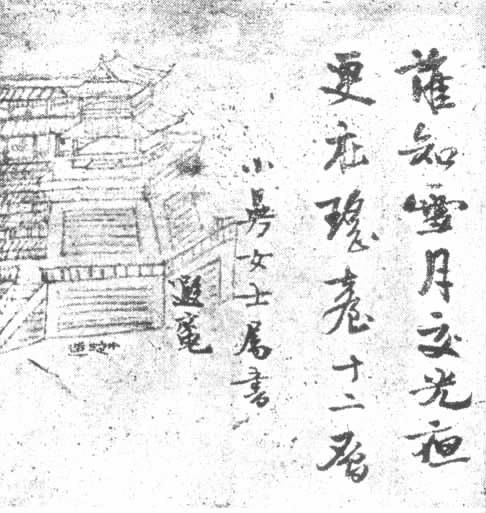 誰知雪月交光夜
更在瑤臺十二層
小曼女士屬書
遐庵